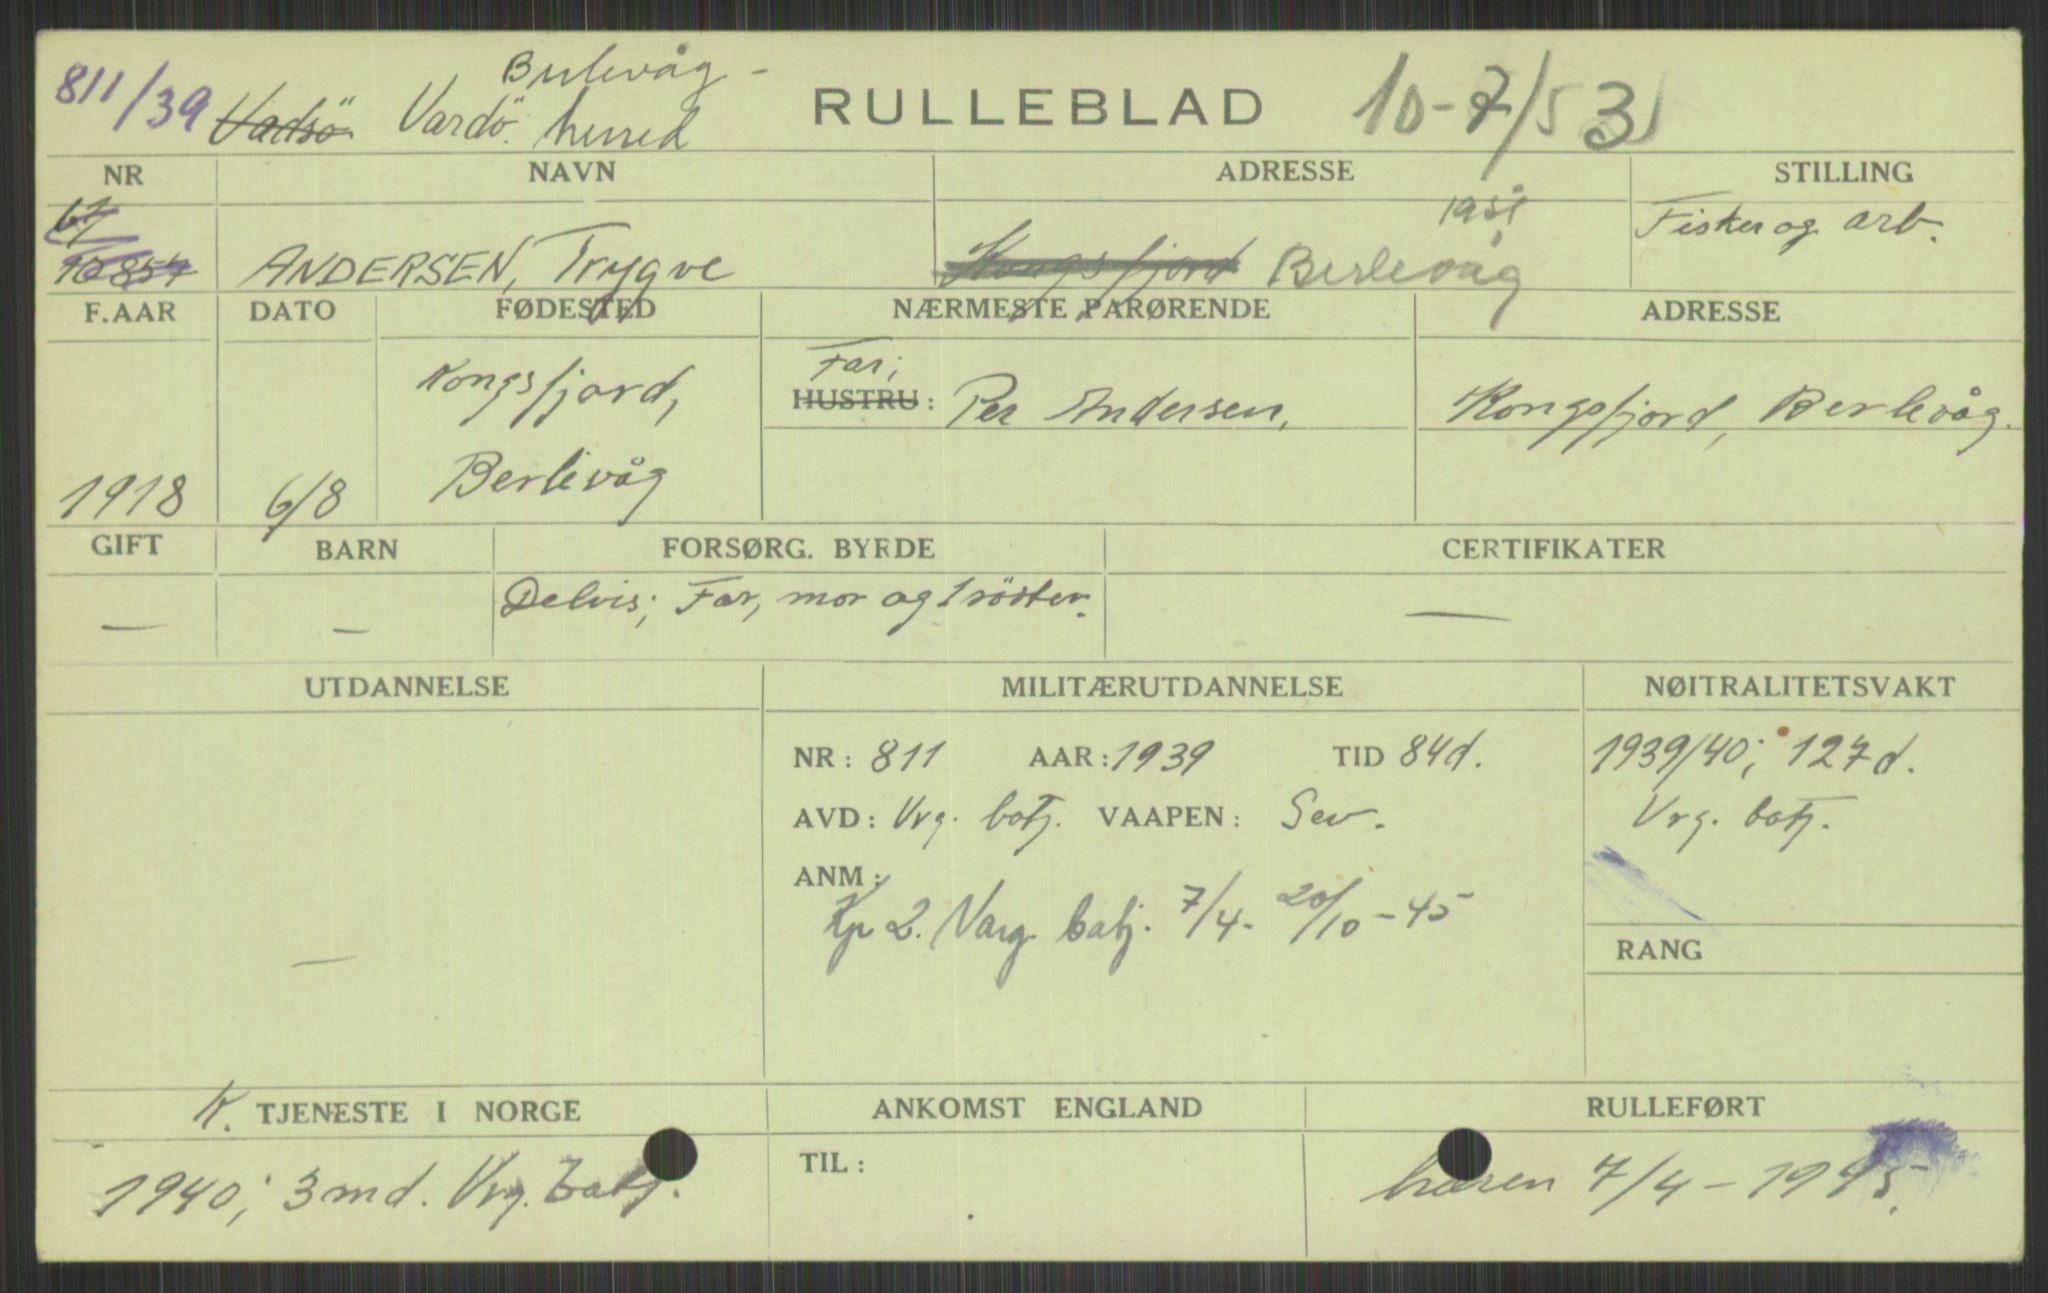 Berlevåg -
811/39 Vadsö Vardö herred RULLEBLAD 10-7/53
NR NAVN ADRESSE STILLING
67 1951 Fisker og arb.
10857 ANDERSEN, Trygve Kongsfjord Berlevåg
F.AAR DATO FØDESTED NÆRMESTE PARØRENDE ADRESSE
Far;
Kongsfjord, HUSTRU: Per Andersen, Kongsfjord, Berlevåg.
1918 6/8 Berlevåg
GIFT BARN FORSØRG. BYRDE CERTIFIKATER
— — Delvis; Far, mor og 1 söster. —
UTDANNELSE MILITÆRUTDANNELSE NØITRALITETSVAKT
NR: 811 AAR: 1939 TID 84d. 1939/40; 127d.
AVD: Vrg. batj. VAAPEN: Sev. Vrg. batj.
ANM:
— Kp 2. Varg. batj. 7/4- 20/10-45
RANG
K. TJENESTE I NORGE ANKOMST ENGLAND RULLEFØRT
1940; 3 md. Vrg. batj. TIL: hæren 7/4-1945.